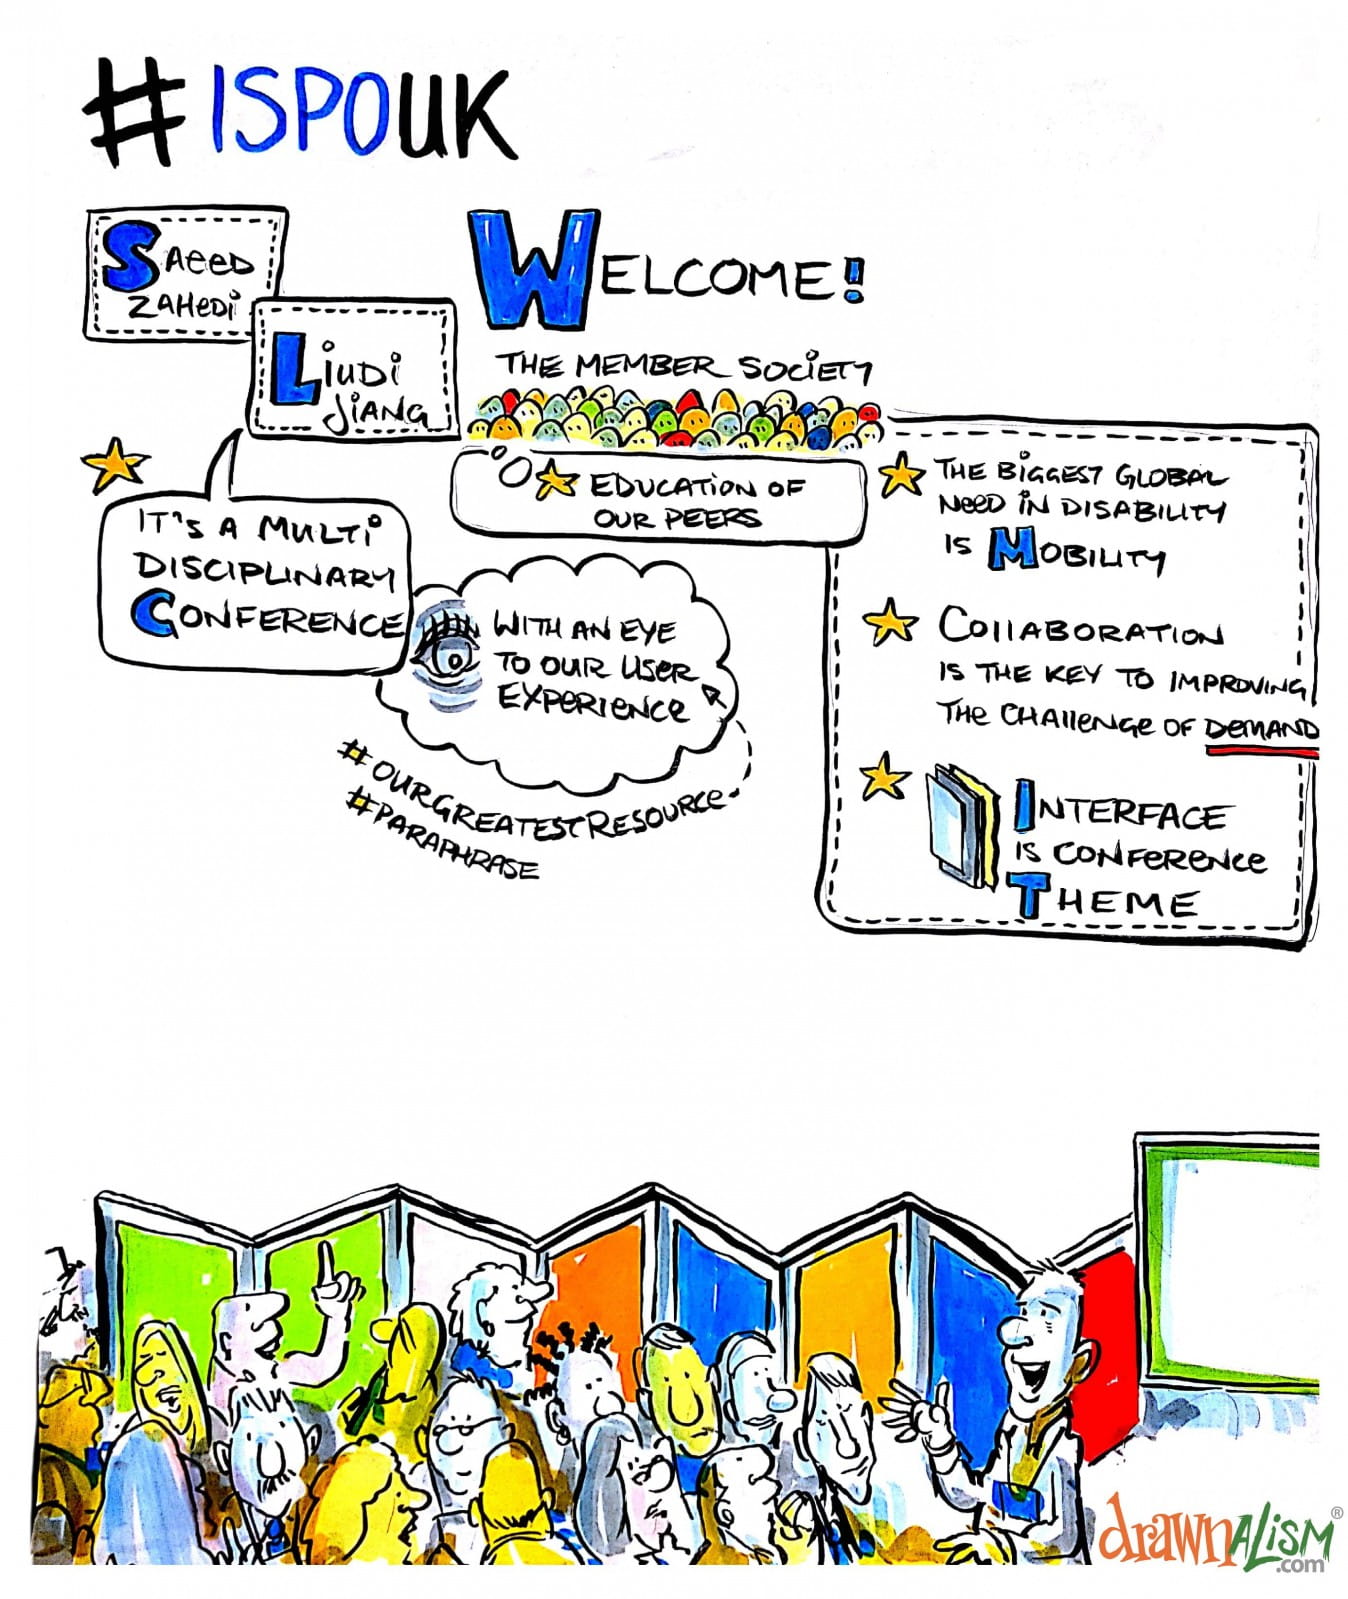 #ISPOUK
SAEED
ZAHEDI
LIUDI
JIANG
WELCOME!
THE MEMBER SOCIETY
EDUCATION OF
OUR PEERS
IT'S A MULTI
DISCIPLINARY
CONFERENCE
WITH AN EYE
TO OUR USER
EXPERIENCE
#OURGREATESTRESOURCE
#PARAPHRASE
THE BIGGEST GLOBAL
NEED IN DISABILITY
IS MOBILITY
COLLABORATION
IS THE KEY TO IMPROVING
THE CHALLENGE OF DEMAND
INTERFACE
IS CONFERENCE
THEME
drawnALISM®
.com